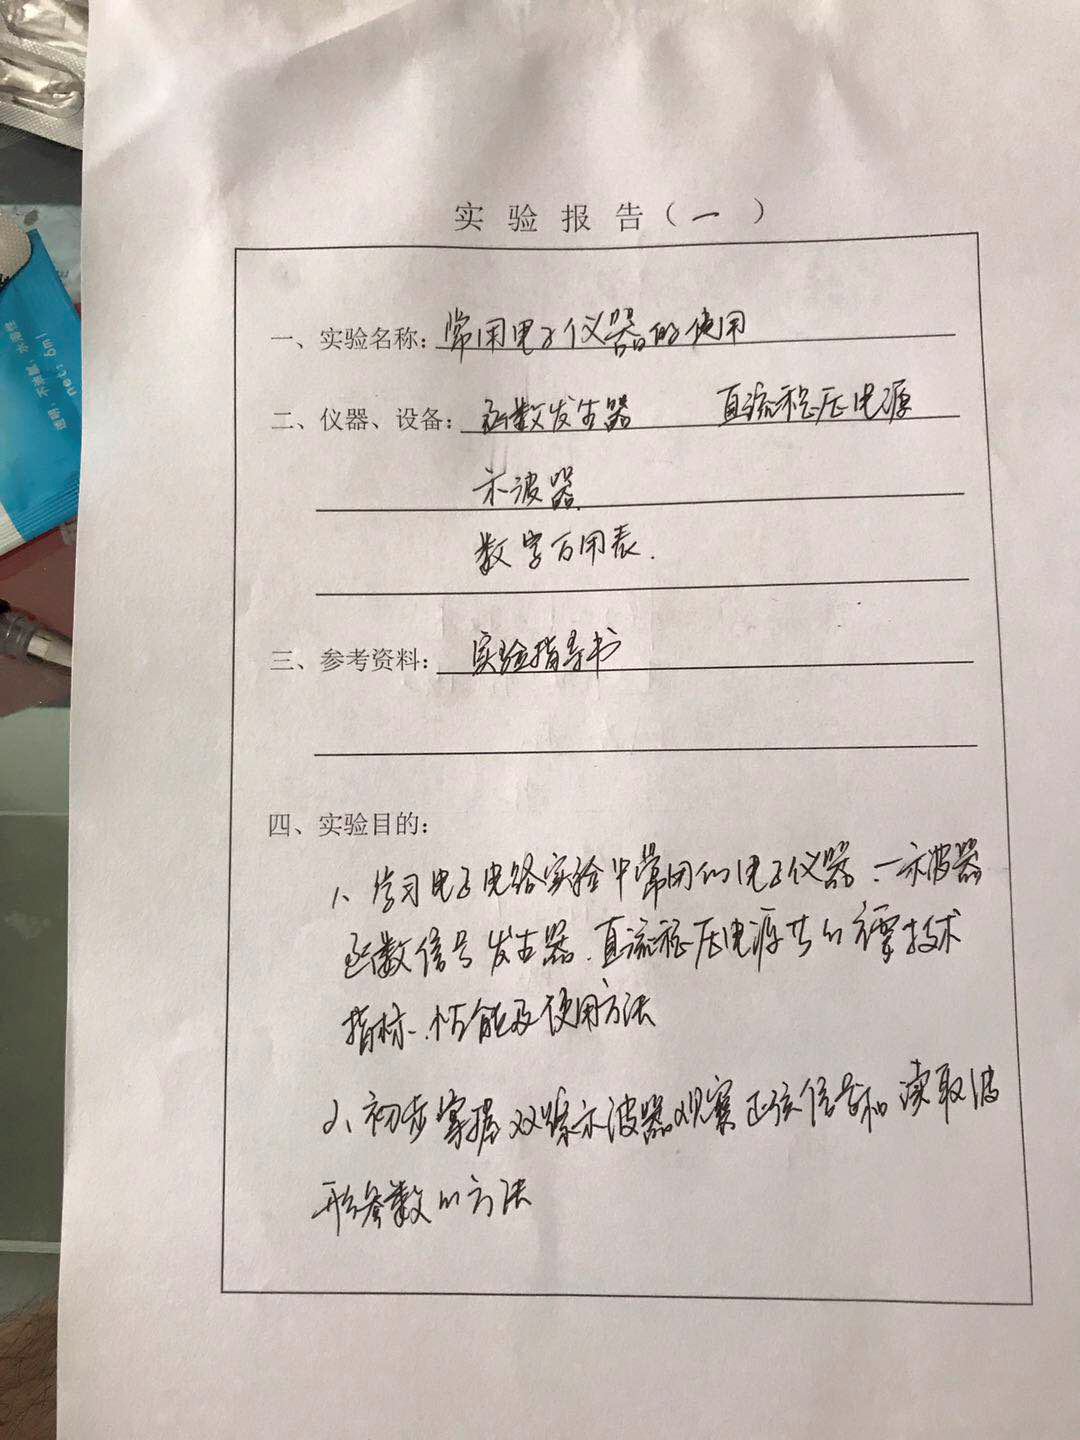 实验报告（一）
一、实验名称：常用电子仪器的使用
二、仪器、设备：函数发生器 直流稳压电源
示波器
数字万用表.
三、参考资料：实验指导书
四、实验目的：
1、学习电子电路实验中常用的电子仪器.一示波器
函数信号发生器.直流稳压电源共的主要技术
指标、性能及使用方法
2、初步掌握双踪示波器观察正弦信号和读取波
形参数的方法
透明、不油腻、水溶性
net: 6ml